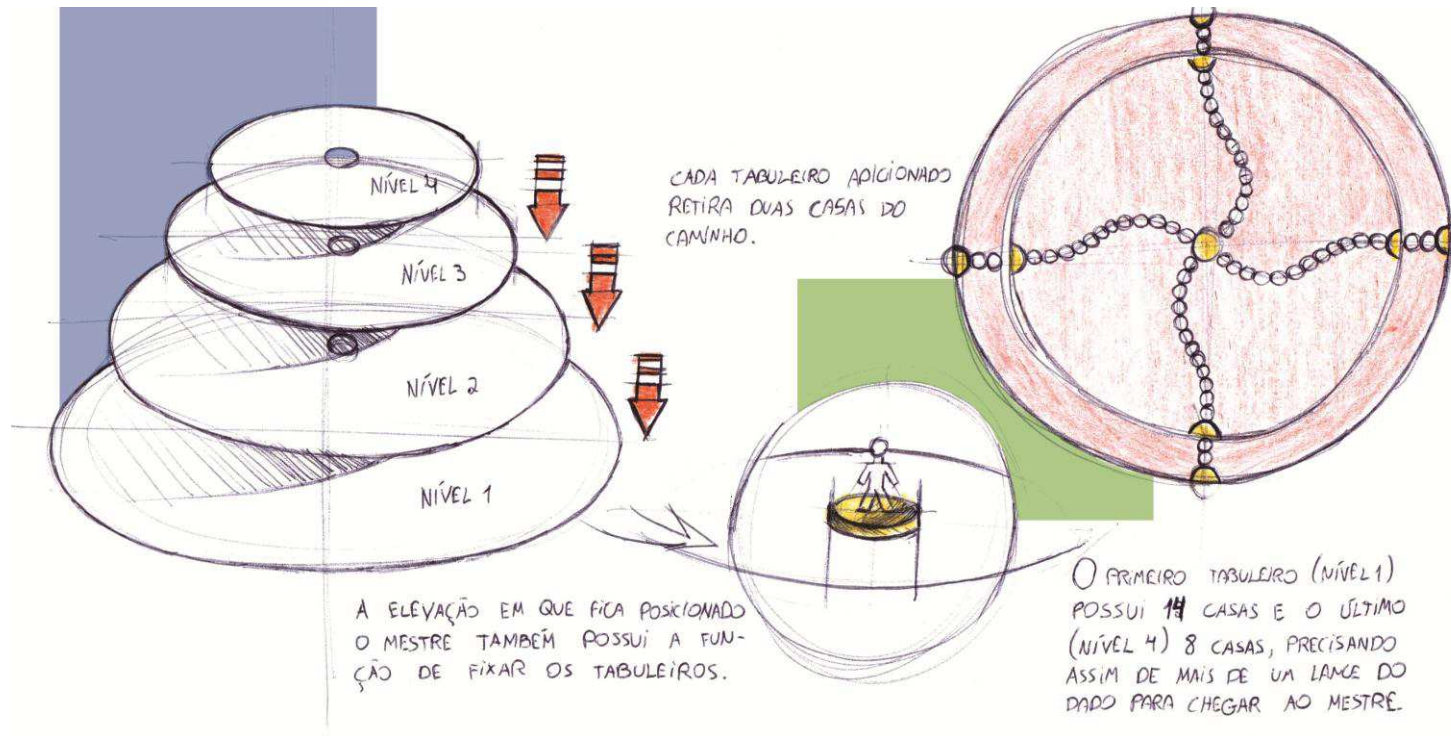 NÍVEL 4
NÍVEL 3
NÍVEL 2
NÍVEL 1
CADA TABULEIRO ADICIONADO
RETIRA DUAS CASAS DO
CAMINHO.
A ELEVAÇÃO EM QUE FICA POSICIONADO
O MESTRE TAMBÉM POSSUI A FUN-
ÇÃO DE FIXAR OS TABULEIROS.
O PRIMEIRO TABULEIRO (NÍVEL 1)
POSSUI 14 CASAS E O ÚLTIMO
(NÍVEL 4) 8 CASAS, PRECISANDO
ASSIM DE MAIS DE UM LANCE DO
DADO PARA CHEGAR AO MESTRE.